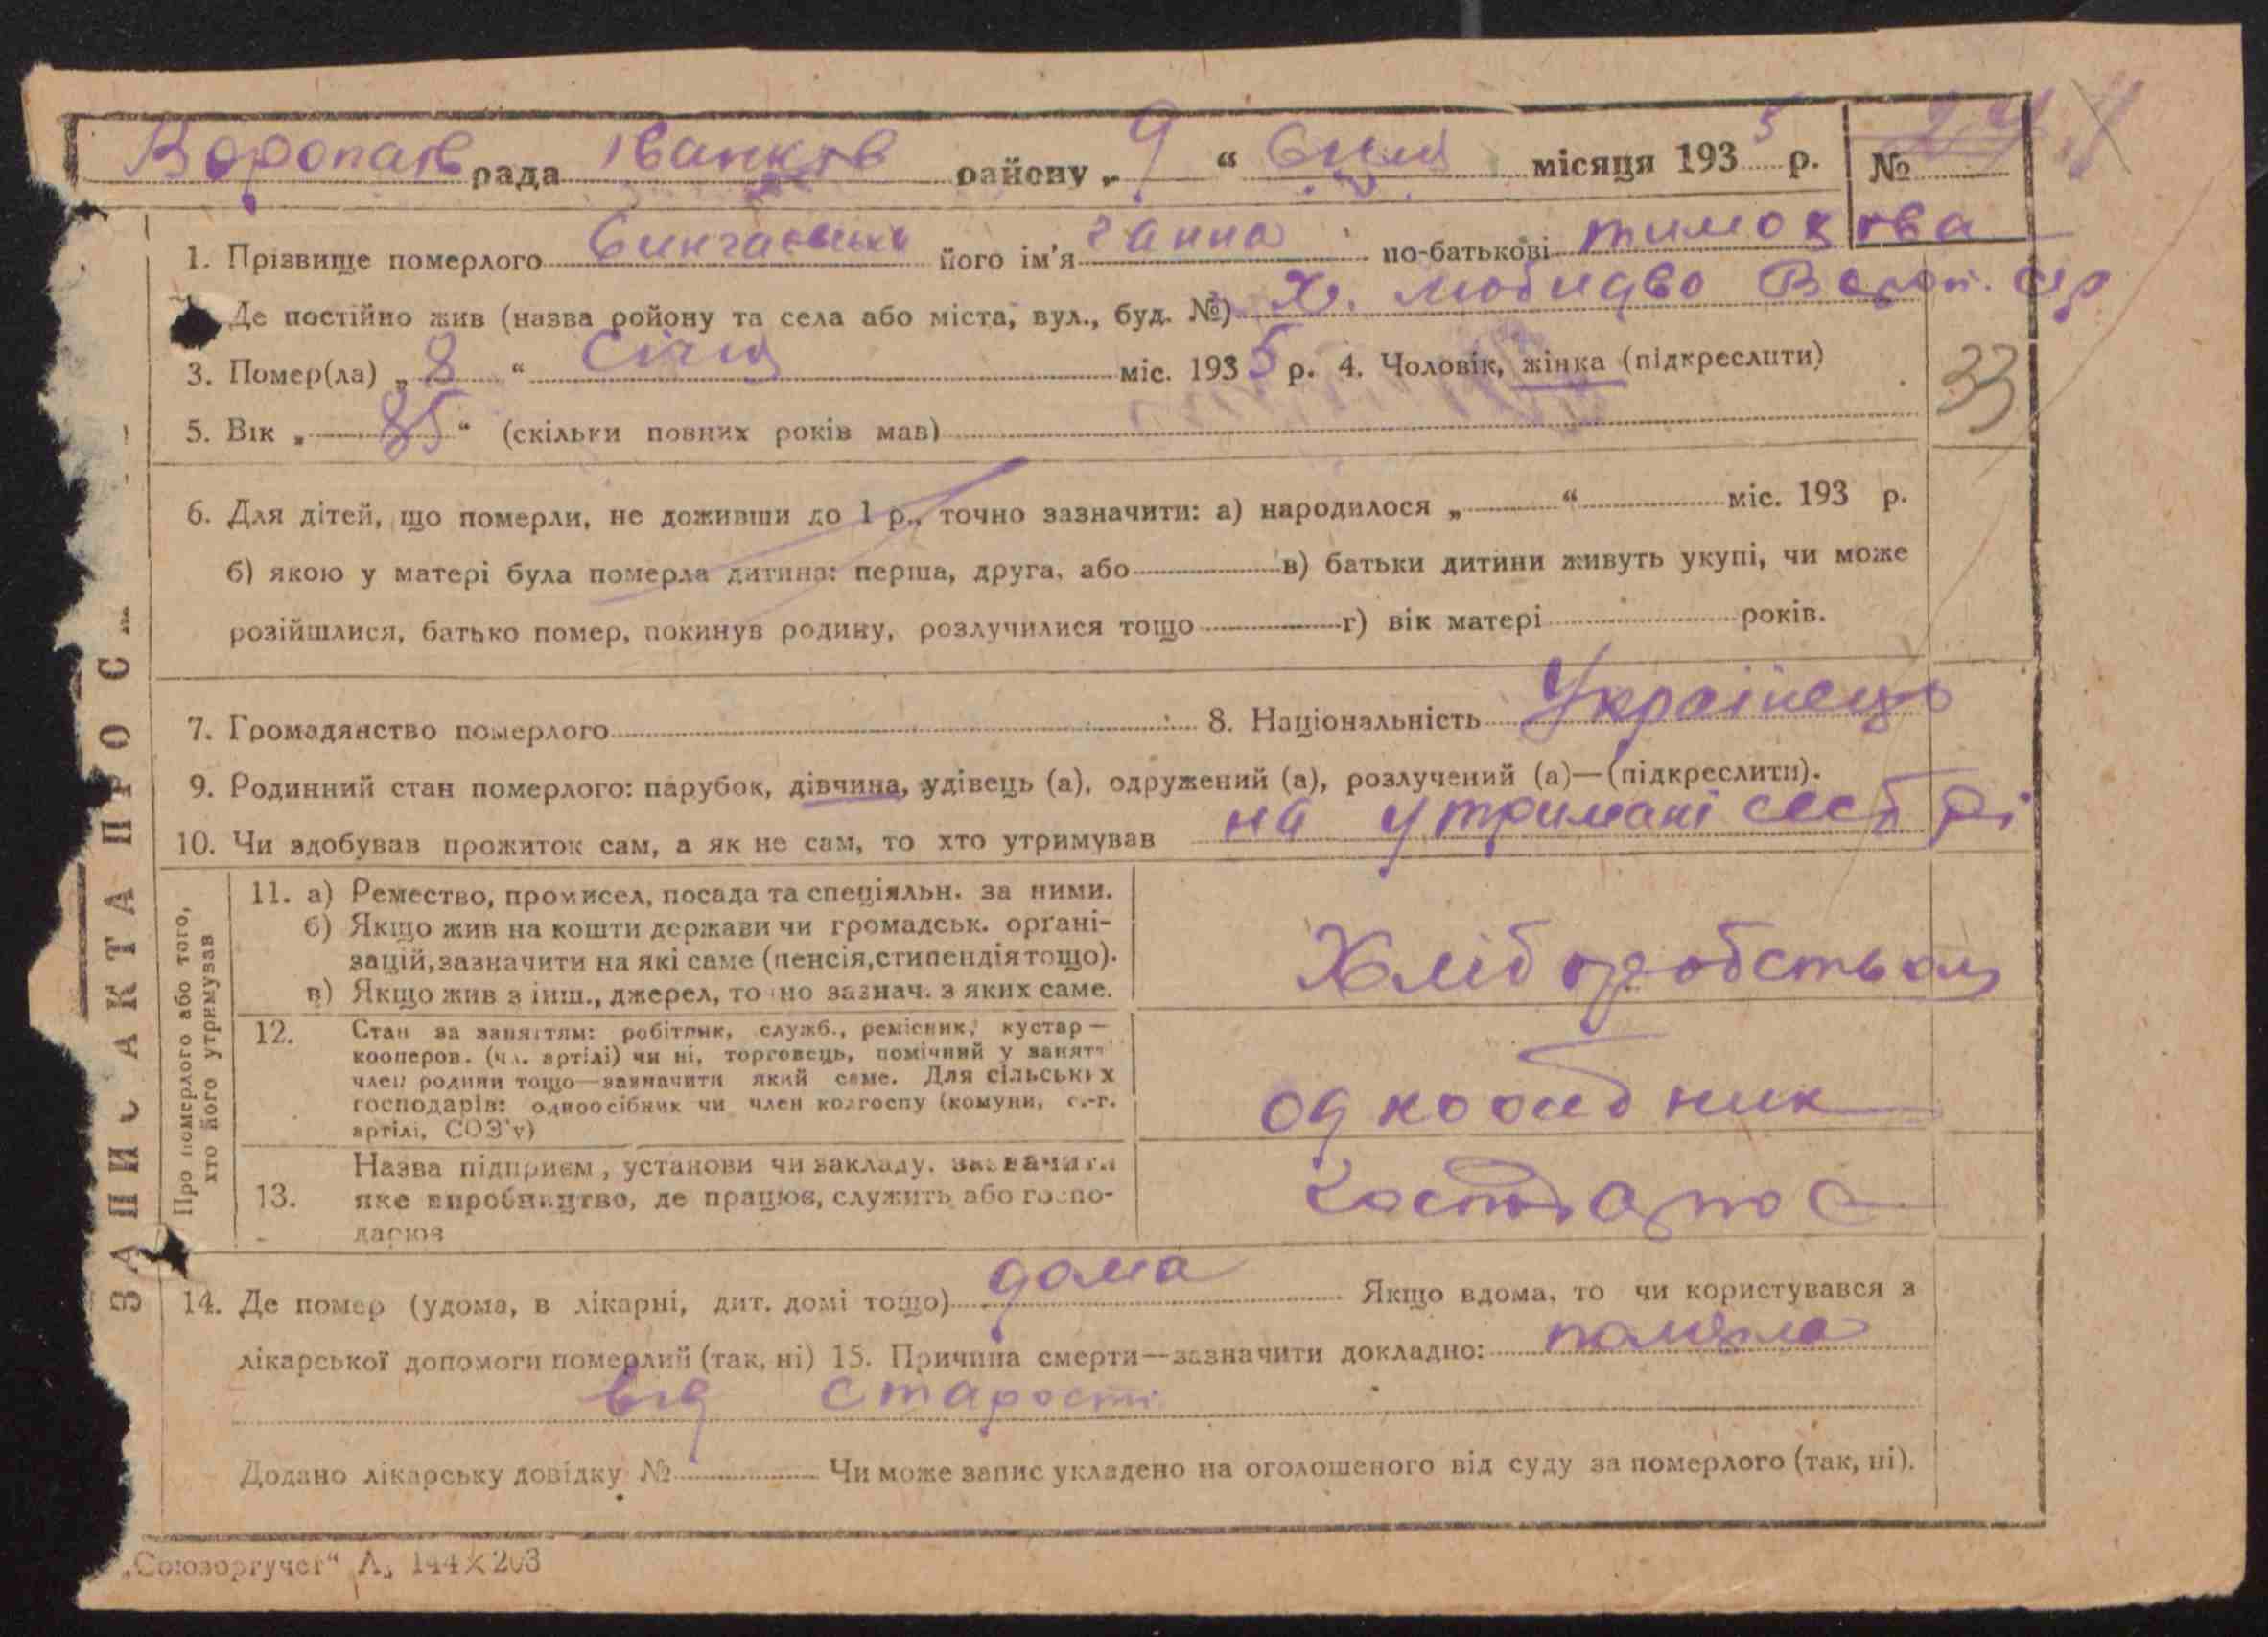 Воропаїв рада Іванків району „ 9 “ січня місяця 193 5 р. №
1. Прізвище померлого його ім'я Ганна по-батькові
Де постійно жив (назва ройону та села або міста, вул., буд. №) х.
3. Помер(ла) „ 8 “ Січня міс. 193 5 р. 4. Чоловік, жінка (підкреслити)
33
5. Вік „ 85 “ (скільки повних років мав)
6. Для дітей, що померли, не доживши до 1 р., точно зазначити: а) народилося „ “ міс. 193 р.
б) якою у матері була померла дитина: перша, друга, або в) батьки дитини живуть укупі, чи може
розійшлися, батько помер, покинув родину, розлучилися тощо г) вік матері років.
7. Громадянство померлого 8. Національність Українець
9. Родинний стан померлого: парубок, дівчина, удівець (а), одружений (а), розлучений (а)—(підкреслити).
10. Чи здобував прожиток сам, а як не сам, то хто утримував на утримані сестри
ЗАПИС АКТА ПРО С
Про померлого або того,
хто його утримував
11. а) Ремество, промисел, посада та спеціяльн. за ними.
б) Якщо жив на кошти держави чи громадськ. органі-
зацій, зазначити на які саме (пенсія, стипендія тощо).
в) Якщо жив з інш., джерел, то но зазнач. з яких саме.
Хліборобством
12. Стан за заняттям: робітник, служб., ремісник, кустар—
кооперов. (чл. артілі) чи ні, торговець, помічний у занятт
член родини тощо—зазначити який саме. Для сільських
господарів: одноосібник чи член колгоспу (комуни, с.-г.
артілі, СОЗ'у)
одноосібник
13. Назва підприєм, установи чи закладу. зазначити
яке виробництво, де працює, служить або госпо-
дарює
14. Де помер (удома, в лікарні, дит. домі тощо) дома Якщо вдома, то чи користувався з
лікарської допомоги померлий (так, ні) 15. Причина смерти—зазначити докладно: померла
від старості
Додано лікарську довідку № Чи може запис укладено на оголошеного від суду за померлого (так, ні).
„Союзоргучет“ А₅ 144×203